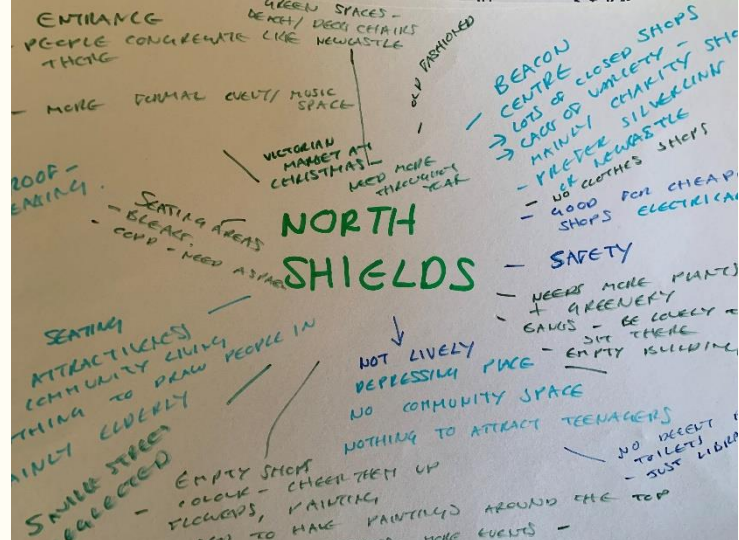 ENTRANCE
- PEOPLE CONGREGATE LIKE NEWCASTLE
THERE
- MORE FORMAL EVENT/ MUSIC
SPACE
GREEN SPACES -
BEACH/ DECK CHAIRS
OLD FASHIONED
VICTORIAN
MARKET AT
CHRISTMAS -
NEED MORE
THROUGHOUT
YEAR
BEACON
CENTRE
→ LOTS OF CLOSED SHOPS
→ LACK OF VARIETY -
MAINLY CHARITY
- PREFER SILVERLINK
OR NEWCASTLE
- NO CLOTHES SHOPS
- GOOD FOR CHEAP
SHOPS
SEATING AREAS
- BLEAK.
- COLD - NEED A
NORTH
SHIELDS
- SAFETY
- NEEDS MORE PLANTS
+ GREENERY
- BE LOVELY
SIT THERE
- EMPTY
SEATING
ATTRACTI
COMMUNITY LIVING
TO DRAW PEOPLE IN
ELDERLY
SAVILLE STREET
NOT LIVELY
DEPRESSING PLACE
NO COMMUNITY SPACE
NOTHING TO ATTRACT TEENAGERS
NO DECENT
TOILETS
- JUST
EMPTY SHOPS
- COLOUR - CHEER THEM UP
FLOWERS, PAINTING
TO HAVE PAINTINGS AROUND THE TOP
MORE EVENTS -